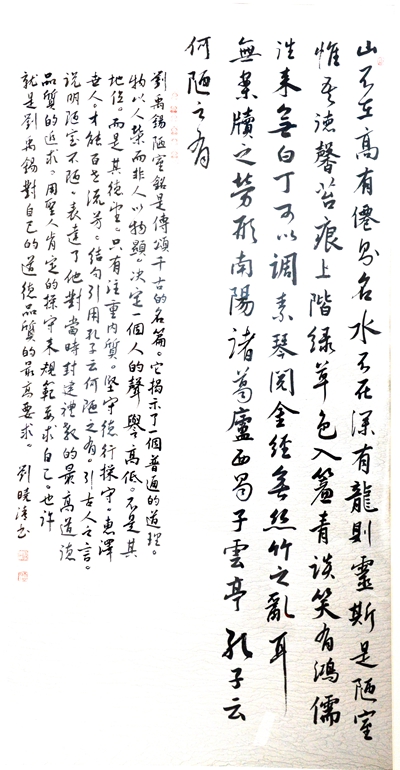 山不在高有僊則名水不在深有龍則靈斯是陋室
惟吾德馨苔痕上階绿草色入簾青談笑有鴻儒
往来無白丁可以调素琴閲金經無丝竹之亂耳
無案牘之勞形南陽諸葛廬西蜀子雲亭孔子云
何陋之有
劉禹錫陋室銘是傳頌千古的名篇。它揭示了個普通的道理。
物以人榮而非人以物顯。決定一個人的聲譽高低。不是其
地位。而是其德望。只有注重内質。堅守德行操守。惠澤
世人。才能百世流芳。结句引用孔子云何陋之有。引古人之言。
说明陋室不陋。表達了他對當時封建禮教的最高道德
品質的追求。用聖人肯定的操守来規範要求自己。也许
就是劉禹錫對自己的道德品質的最高要求。劉曉